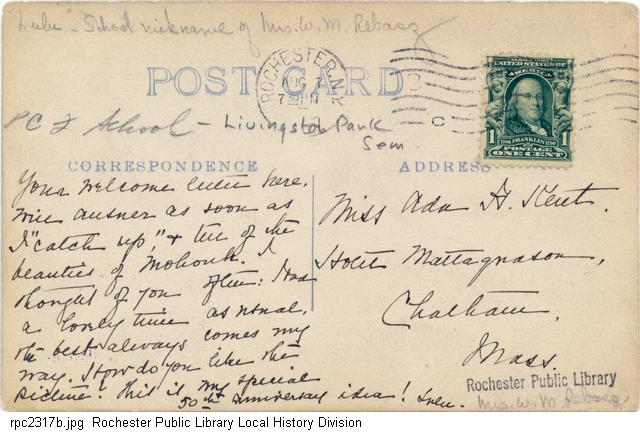 "Lulu" - School nickname of Mrs. W. M. Rebasz
ROCHESTER, N.Y.
AUG 7
7 30 PM
POST CARD
C
SERIES 1902
UNITED STATES OF AMERICA
1706 FRANKLIN 1790
POSTAGE
1 ONE CENT 1
PC F School - Livingston Park
Sem.
CORRESPONDENCE
ADDRESS
Your welcome letter here.
Will answer as soon as
I "catch up," & tell of the
beauties of Mohonk. I
thought of you often: Had
a lovely time as usual.
the best always comes my
way. How do you like the
picture! This is my special
50th anniversary idea! Lulu.
Miss Ada H. Kent.
Hotel Mattaquason,
Chatham,
Mass.
Rochester Public Library
Mrs. W. M. Rebasz
rpc2317b.jpg Rochester Public Library Local History Division